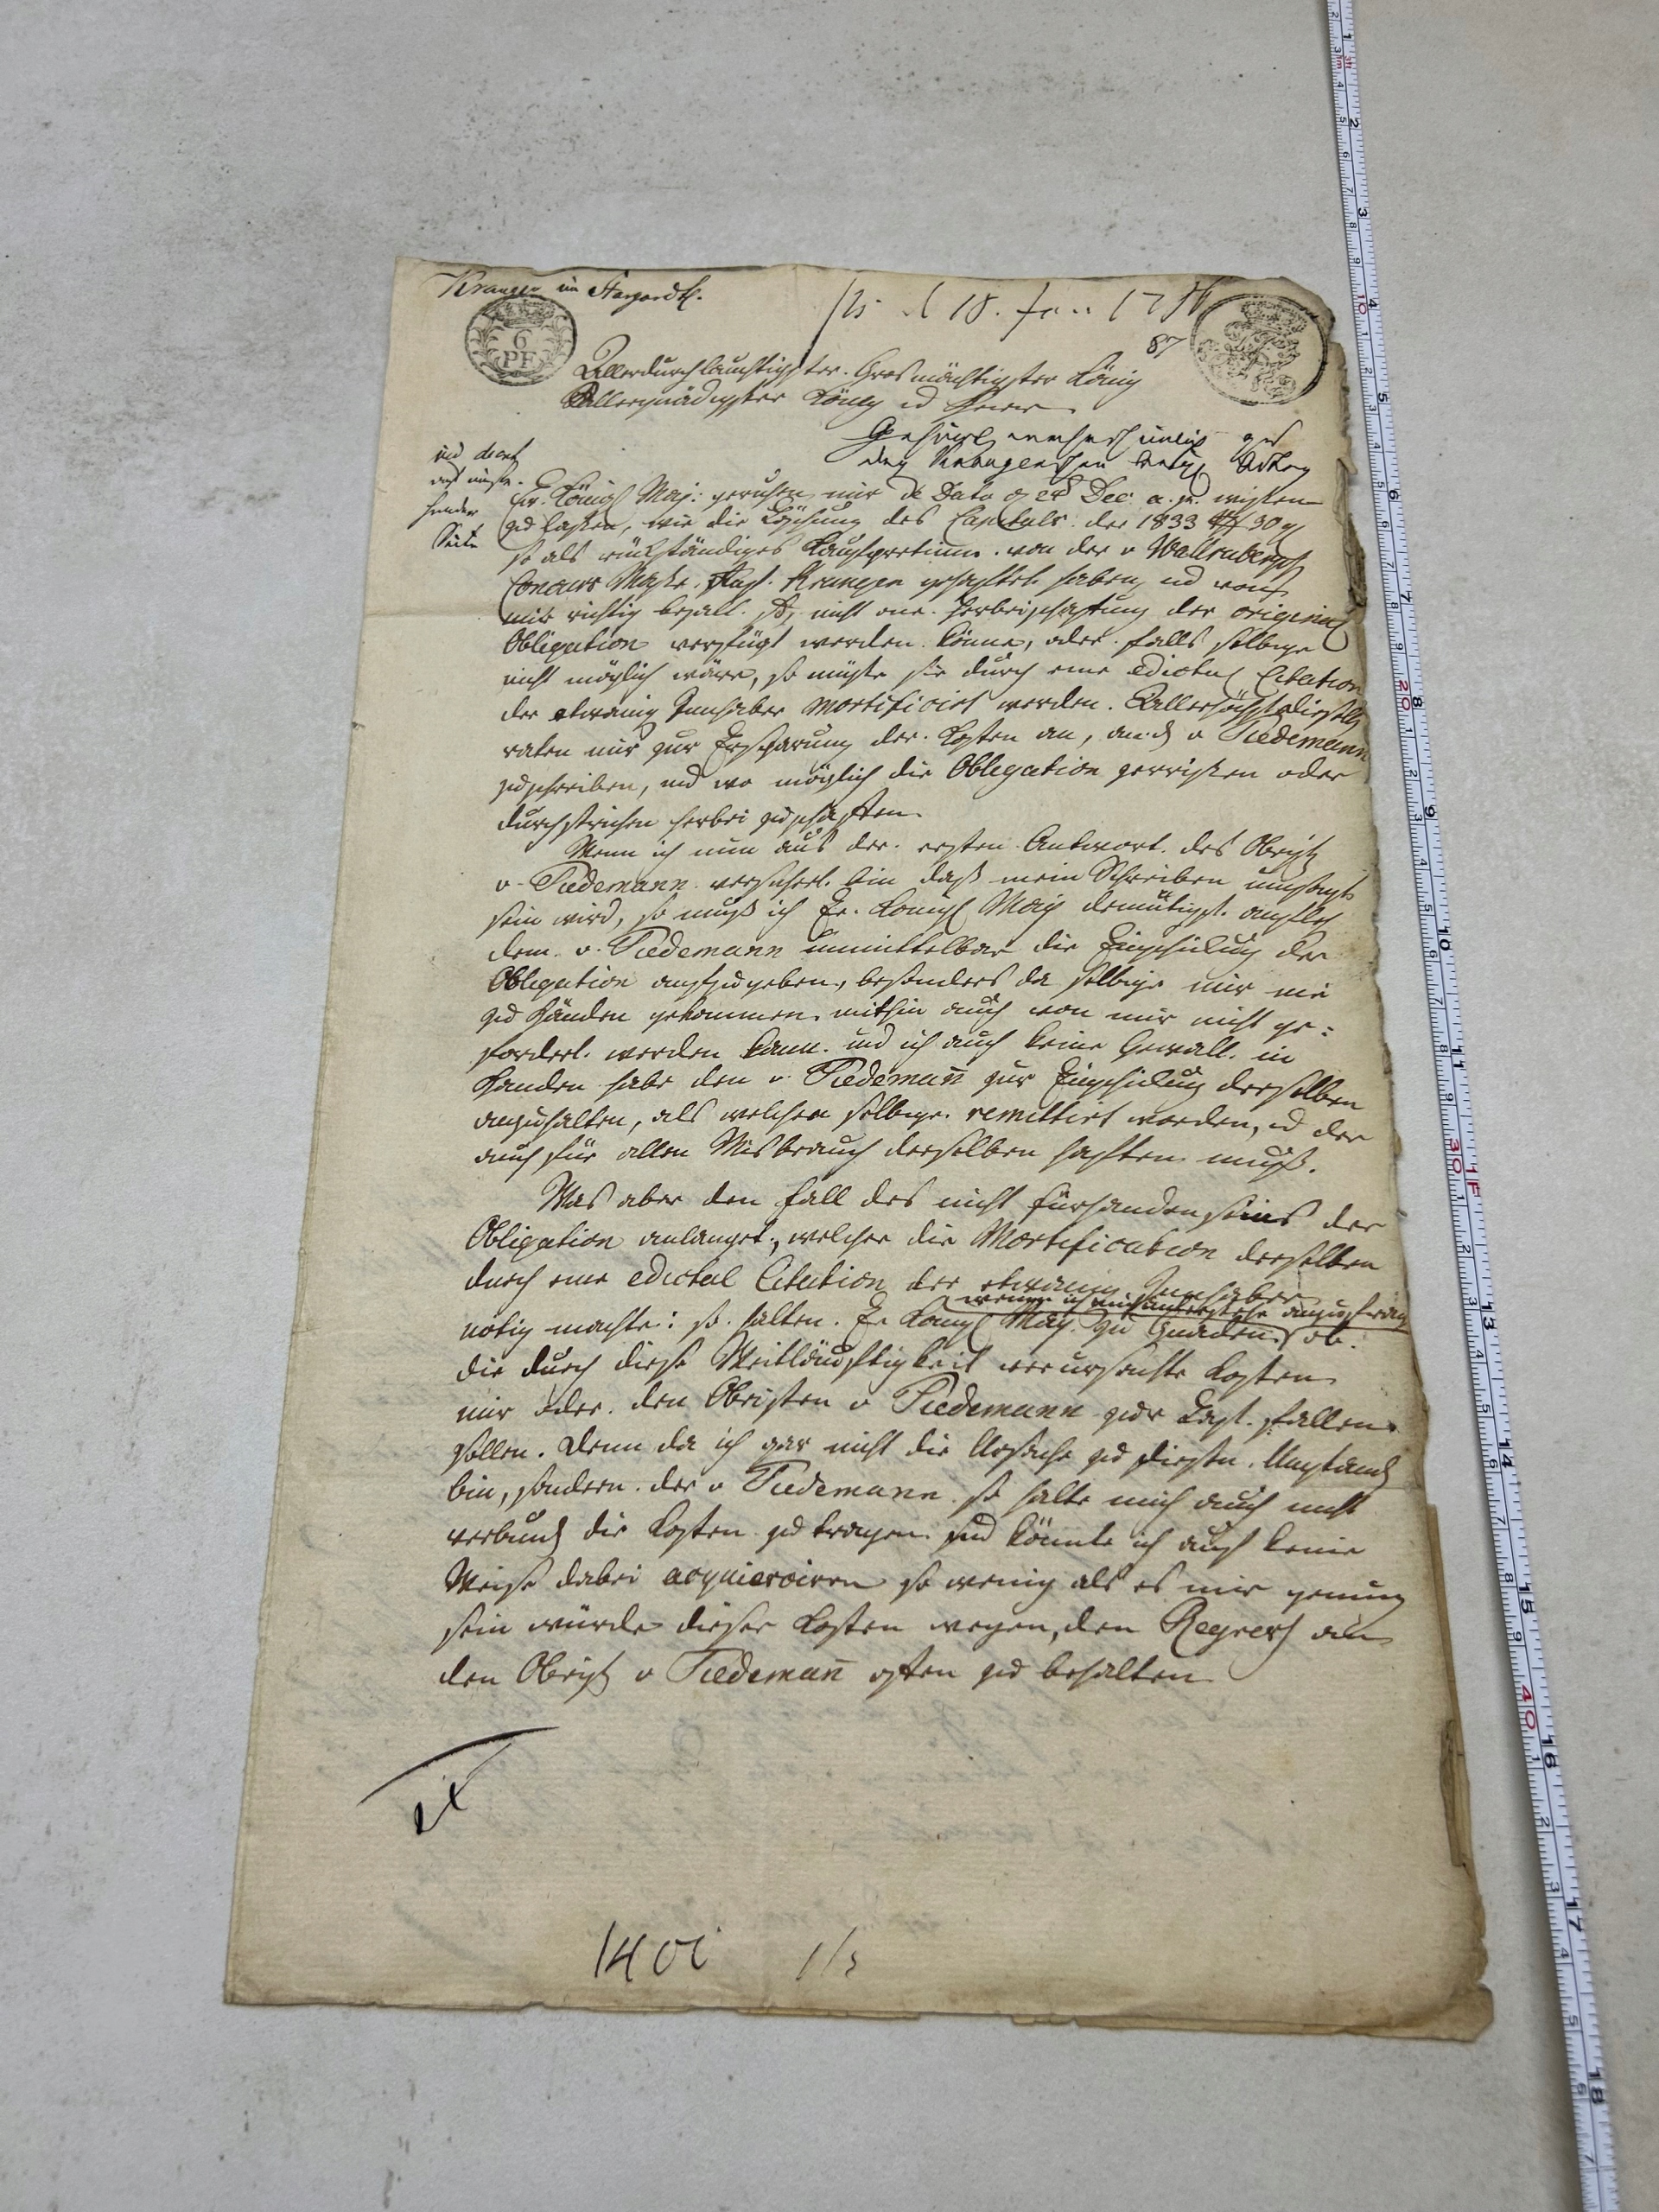 Krangen im Stargardtschen.
6
PF
18. Jan. 17
87
Allerdurchlauchtigster. Grosmächtigster König
Allergnädigster König und Herr
Gehört
den Krangenschen
und
Seite
Ew. Königl Maj: geruhen mir de Dato d 24 Dec: a. p. wissen
zu lassen, wie die Löschung des Capitals. der 1833 rthl 30 g
so als rückständiges Kaufpretium. von der v Wallenbergsch
Concurs Masse. Krangen gehaftet haben, und von
mir richtig bezalt. ist, nicht one. Herbeischaffung der original
Obligation verfügt werden könne, oder. falls selbige
nicht möglich wäre, so müste sie durch eine edictal Citation
der etwanig Innhaber mortificirt werden. Allerhöchstdieselb
raten mir zur Ersparung der. Kosten an, an d v Tiedemann
zu schreiben, und wo möglich die Obligation zerrissen oder
durchstrichen herbei zu schaffen.
Wenn ich nun aus der. ersten Antwort. des Obrist
v. Tiedemann versichert. bin daß mein Schreiben umsonst
sein wird, so muß ich Ew. Königl Maj demütigst.
dem v. Tiedemann unmittelbar die Einschickung der
Obligation aufzugeben, besonders da selbige mir nie
zu Händen gekommen. mithin auch von mir nicht ge=
fordert. werden kann. und ich auch keine Gewalt. in
Händen habe den v Tiedemann zur Einschickung derselben
anzuhalten, als welchem selbige. remittirt worden, u der
auch für allen Misbrauch derselben haften muß.
Was aber den Fall des nicht Fürhandenseins der
Obligation anlanget, welcher die Mortification derselben
durch eine edictal Citation der etwanig Innhaber
wenn ich mich unterstehe anzufragen
nötig machte: so. halten. Ew Königl Maj. zu Gnaden ob.
die durch diese Weitläuftigkeit verursachte Kosten
mir oder. den Obristen v Tiedemann zur Last. fallen
sollen. Denn da ich gar nicht die Ursache zu diesen. Umständ
bin, sondern. der v Tiedemann so halte mich auch nicht
verbund die Kosten zu tragen. und könnte ich auf keine
Weise dabei acquiesciren so wenig als es mir genung
sein würde dieser Kosten wegen, den Regress an
den Obrist v Tiedemañ offen zu behalten